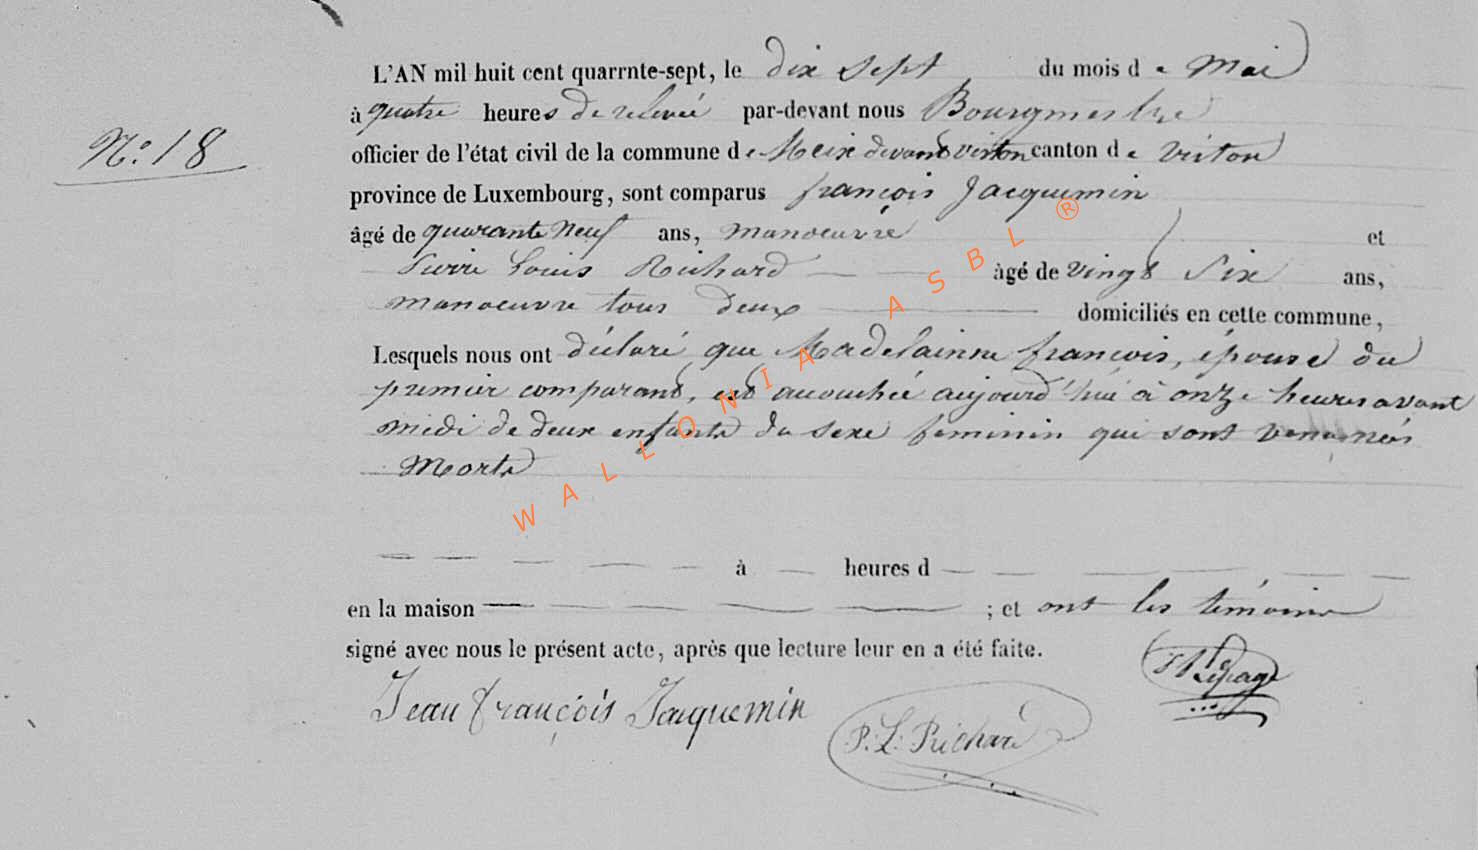 L'AN mil huit cent quarrnte-sept, le dix sept du mois de Mai
à quatre heures de relevée par-devant nous Bourgmestre
N.o 18
officier de l'état civil de la commune de Meix devant virton canton de virton
province de Luxembourg, sont comparus françois Jacquemin
âgé de quarante neuf ans, manoeuvre et
Pierre Louis Richard âgé de vingt Six ans,
manoeuvre tous deux domiciliés en cette commune,
Lesquels nous ont déclaré que Madelainne françois, épouse du
premier comparant, est accouchée aujourd'hui à onze heures avant
midi de deux enfants du sexe feminin qui sont nés
Morts
à heures d
en la maison ; et ont les témoins
signé avec nous le présent acte, après que lecture leur en a été faite.
Jean françois Jacquemin
P. L. Richard
Lepage
WALLONIA ASBL ®